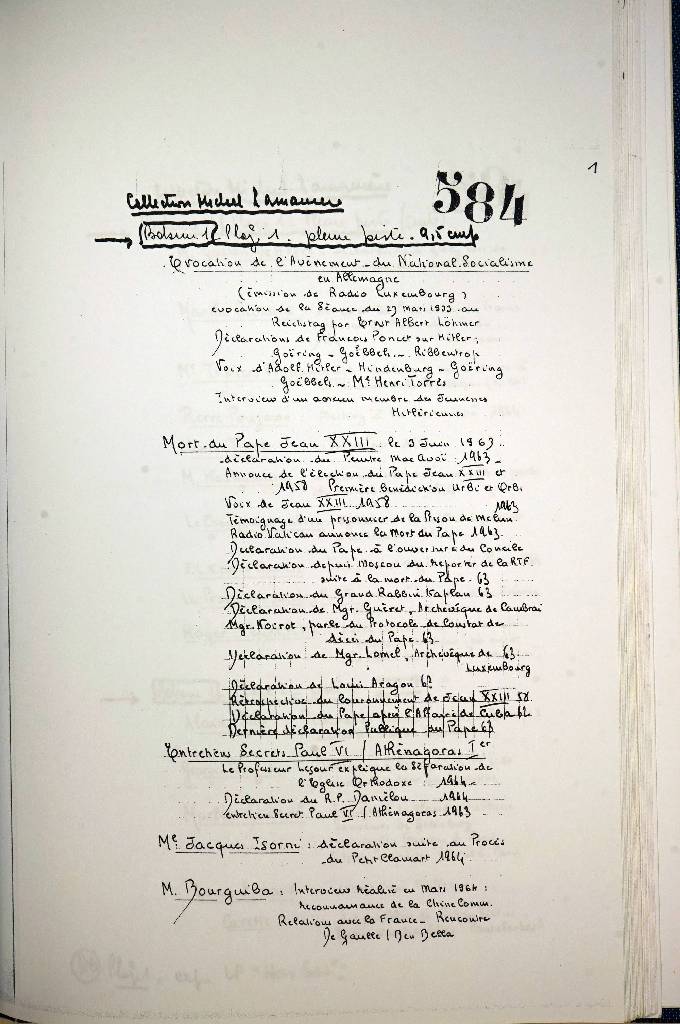 1
584
Collection Michel
Bobine 1 Plag. 1. pleine piste - 9,5 cm/s
Evocation de l'Avènement du National Socialisme
en Allemagne
(émission de Radio Luxembourg)
evocation de la Séance du 23 mars 1933 au
Reichstag par Ernst Albert Löhmer
Déclarations de François Poncet sur Hitler,
Goëring - Goëbbels - Ribbentrop
Voix d'Adolf Hitler - Hindenburg - Goëring
Goëbbels - Me Henri Torrès
Interview d'un ancien membre des Jeunesses
Hitlériennes
Mort du Pape Jean XXIII le 3 Juin 1963
déclaration du Peintre Mac Avoï 1963
Annonce de l'élection du Pape Jean XXIII et
1958 Première Bénédiction Urbi et Orbi
Voix de Jean XXIII 1958
1963
Témoignage d'un prisonnier de la Prison de Melun
Radio Vatican annonce la Mort du Pape 1963
Déclaration du Pape à l'ouverture du Concile
Déclaration depuis Moscou du Reporter de la RTF
suite à la mort du Pape 63
Déclaration du Grand Rabbin Kaplan 63
Déclaration de Mgr. Guéret, Archevêque de Cambrai
Mgr. Noirot, parle du Protocole de Constat de
décès du Pape 63
Déclaration de Mgr. Lomel, Archevêque de 63
Luxembourg
Déclaration de Louis Aragon 62
Rétrospective du Couronnement de Jean XXIII 58
Déclaration du Pape après l'Affaire de Cuba 62
Dernière déclaration Publique du Pape 63
Entretien Secrets Paul VI / Athënagoras Ier
Le Professeur Lesour explique la Séparation de
l'Eglise Orthodoxe : 1964
Déclaration du R.P. Daniélou 1964
entretien Secret Paul VI / Athënagoras 1963
Me Jacques Isorni : déclaration suite au Procès
du Petit Clamart 1964
M. Bourguiba : Interview réalisé en Mars 1964 :
reconnaissance de la Chine Comm.
Relations avec la France - Rencontre
De Gaulle / Ben Bella